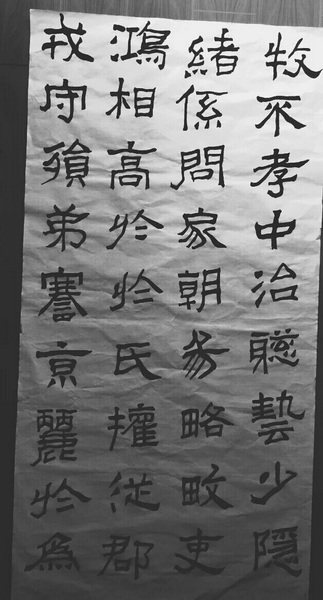 牧不孝中治聽藝少隱
緒係問家朝略畋吏
鴻相高於於氏擁從郡
戎守弟謇京麗於爲